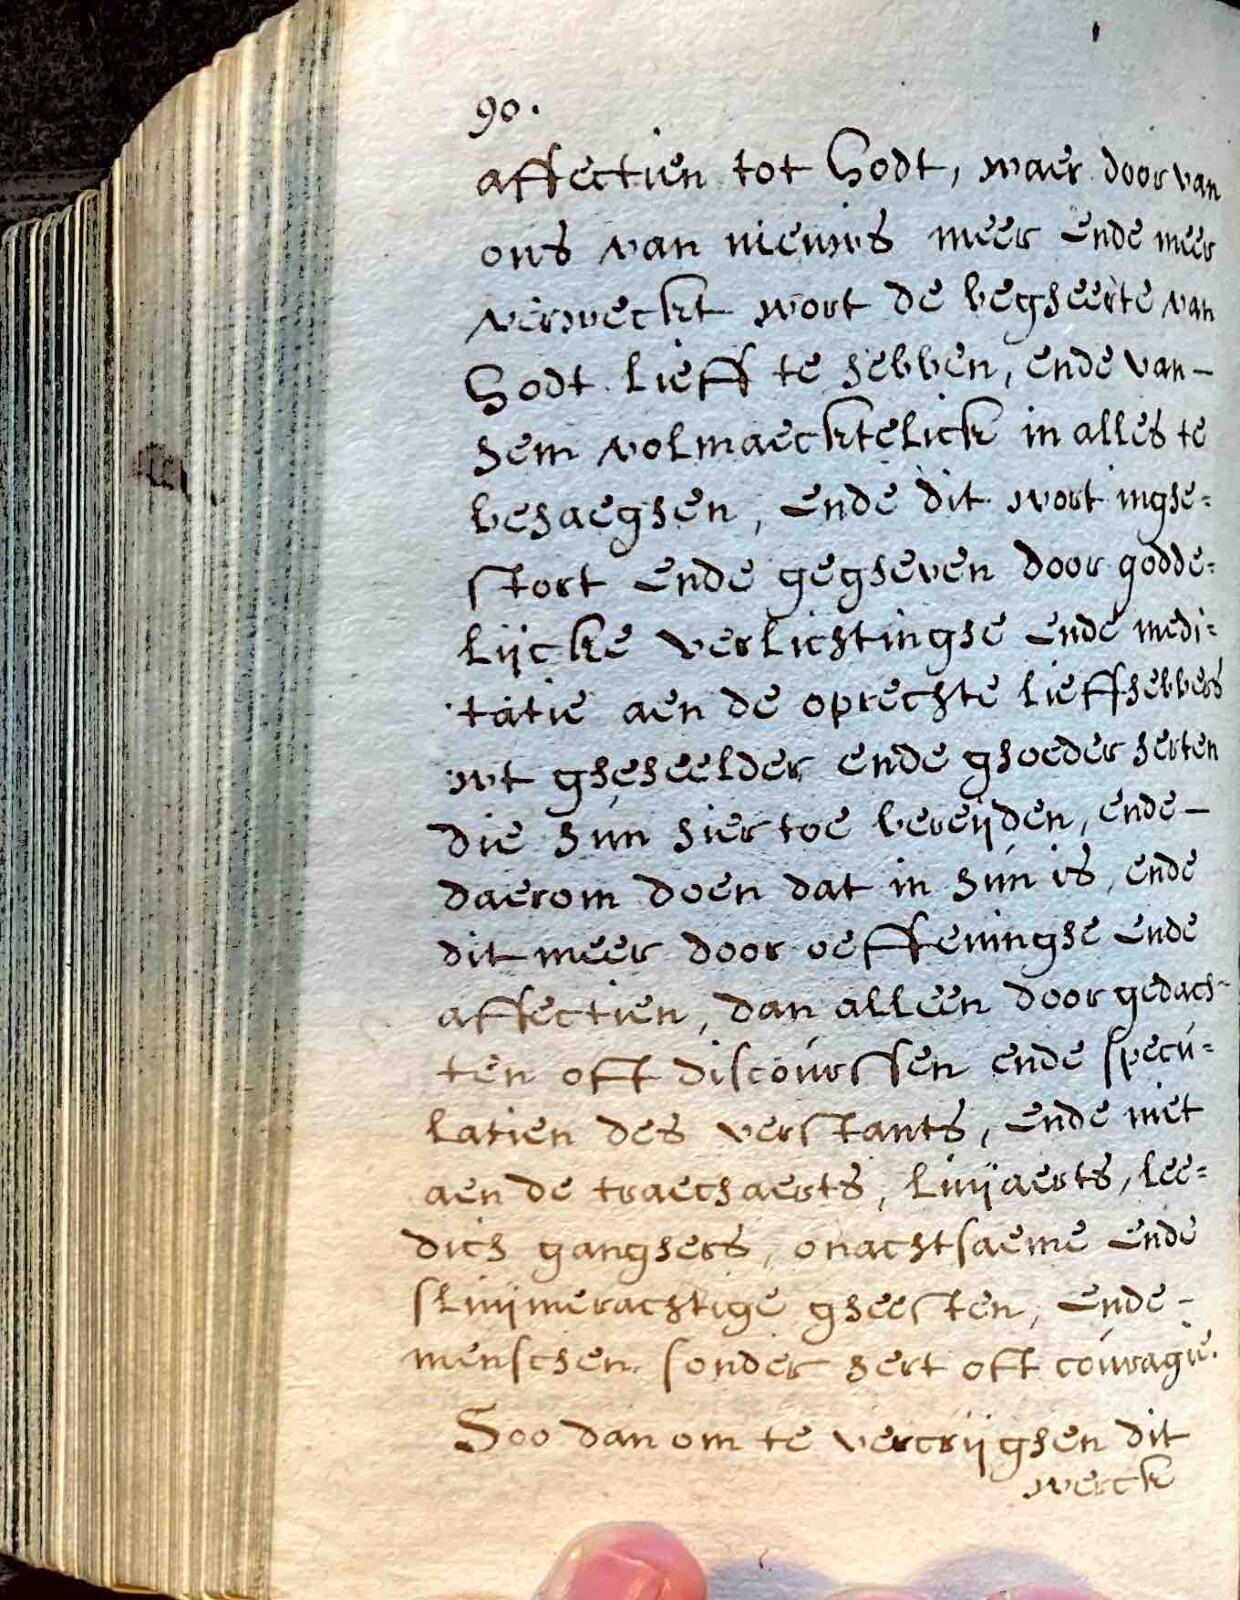 90.
affectien tot Godt, waer door van
ons van nieuws meer ende meer
verweckt wort de begheerte van
Godt lieff te hebben, ende van-
hem volmaecktelick in alles te
behaeghen, ende dit wort inghe=
stort ende gegheven door godde=
lijcke verlichtinghe ende medi=
tatie aen de oprechte lieffhebbers
wt gheheelder ende ghoeder herten
die hun hier toe bereijden, ende-
daerom doen dat in hun is, ende
dit meer door oeffeninghe ende
affectien, dan alleen door gedach-
ten oft discourssen ende specu=
latien des verstants, ende niet
aen de traechaerts, luijaerts, lee=
dich ganghers, onachtsaeme ende
sluijmerachtige gheesten, ende-
menschen sonder hert oft couragie.
Soo dan om te vercrijghen dit
werck